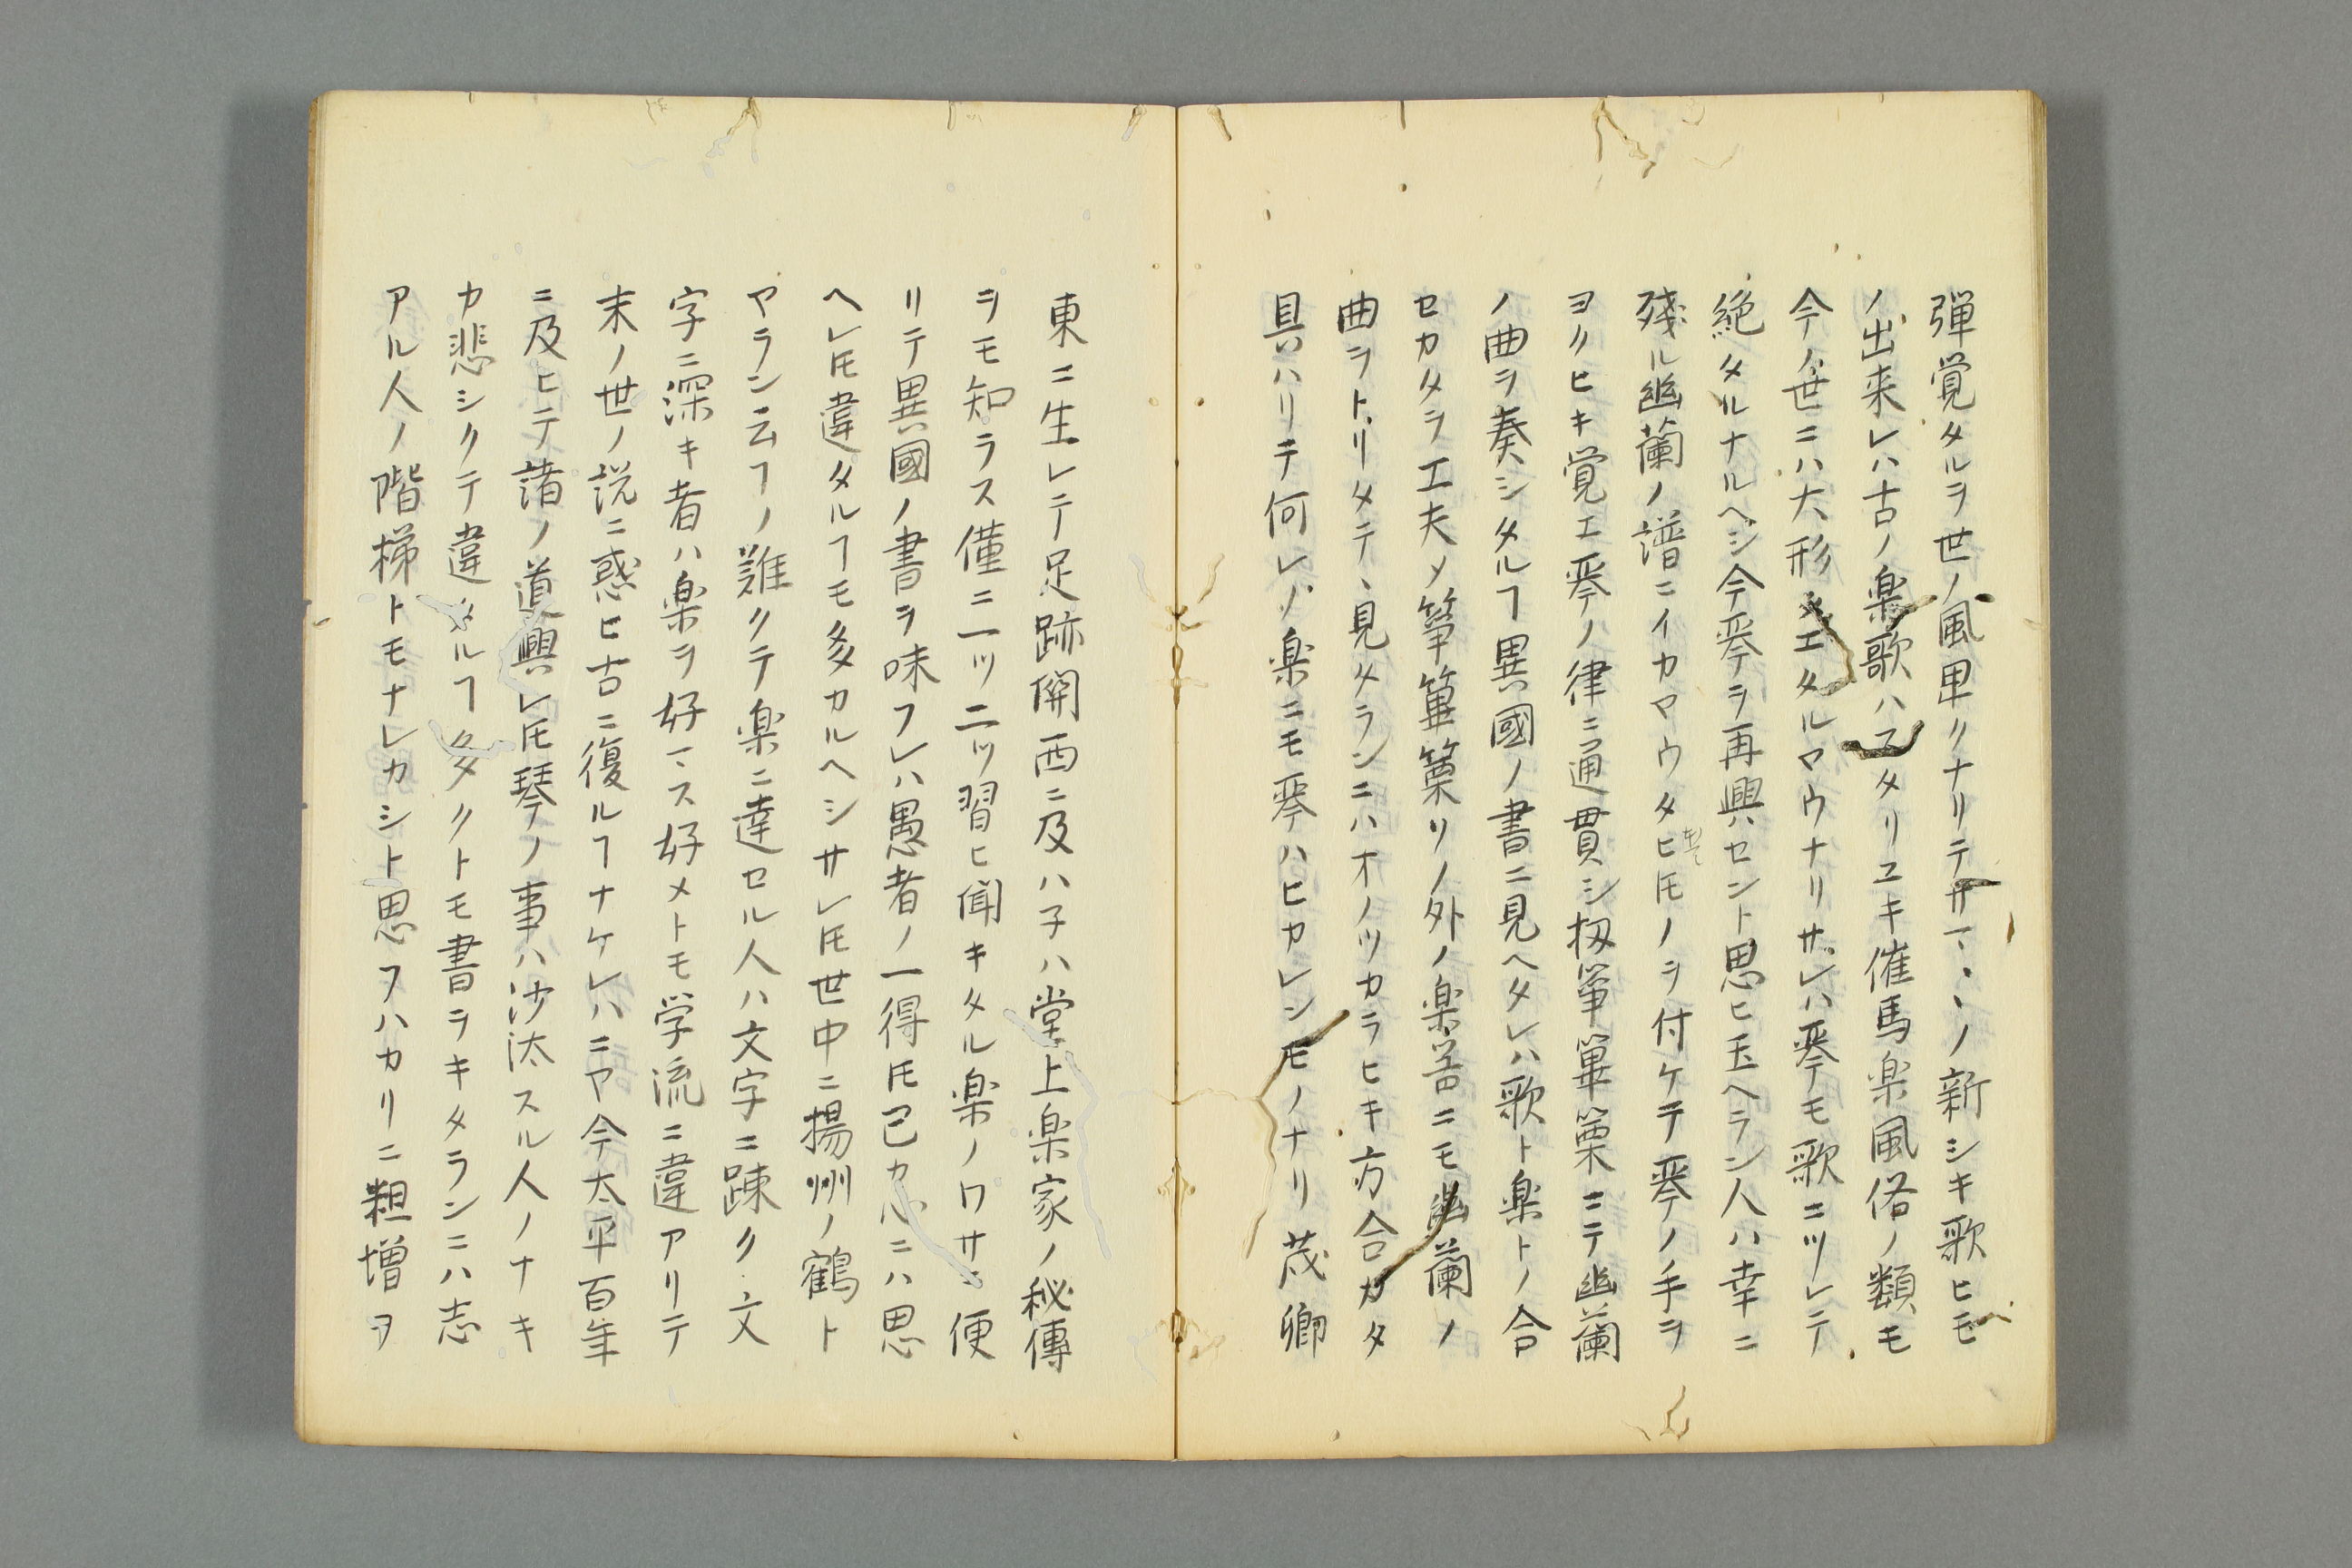 弾覚タルヲ世ノ風甲クナリテサマ〻ノ新シキ歌ヒモ
ノ出来レハ古ノ楽歌ハスタリユキ催馬楽風俗ノ類モ
今ノ世ニハ大形タエタルマウナリサレハ琴モ歌ニツレテ
絶タルナルヘシ今琴ヲ再興セント思ヒ玉ヘラン人ハ幸ニ
残ル幽蘭ノ譜ニイカマウタヒ𪜈ノヲ付ケテ琴ノ手ヲ
ヨクヒキ覚エ琴ノ律ニ通貫シ扨箏篳篥ニテ幽蘭
ノ曲ヲ奏シタルヿ異國ノ書ニ見ヘタレハ歌ト楽トノ合
セカタヲ工夫〆箏篳篥リノ外ノ楽器ニモ幽蘭ノ
曲ヲトリタテ、見タランニハオノツカラヒキ方合カタ
具ハリテ何レノ楽ニモ琴ハヒカレンモノナリ茂卿
東ニ生レテ足跡関西ニ及ハ子ハ堂上楽家ノ秘傳
ヲモ知ラス僅ニ一ツ二ツ習ヒ聞キタル楽ノワサニ便
リテ異國ノ書ヲ味フレハ愚者ノ一得𪜈己カ心ニハ思
ヘレ𪜈違タルヿモ多カルヘシサレ𪜈世中ニ揚州ノ鶴ト
ヤラン云フノ難クテ楽ニ達セル人ハ文字ニ踈ク文
字ニ深キ者ハ楽ヲ好マス好メトモ学流ニ違アリテ
末ノ世ノ説ニ惑ヒ古ニ復ルヿナケレハニヤ今太平百年
ニ及ヒテ諸ノ道興レ𪜈琴ノ事ハ沙汰スル人ノナキ
カ悲シクテ違タルヿ多クトモ書ヲキタランニハ志
アル人ノ階梯トモナレカシト思フハカリニ粗増ヲ